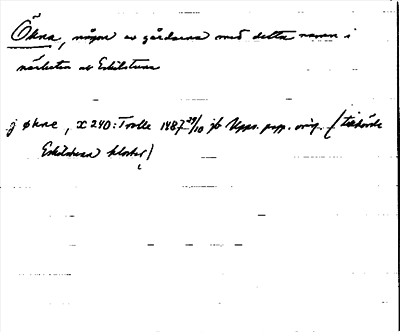 Ökna, någon av gårdarna med detta namn i
närheten av Eskilstuna
j økne, x 240: Trolle 1487 29/10 jb Upps. papp. orig. (tillhörde
Eskilstuna kloster)